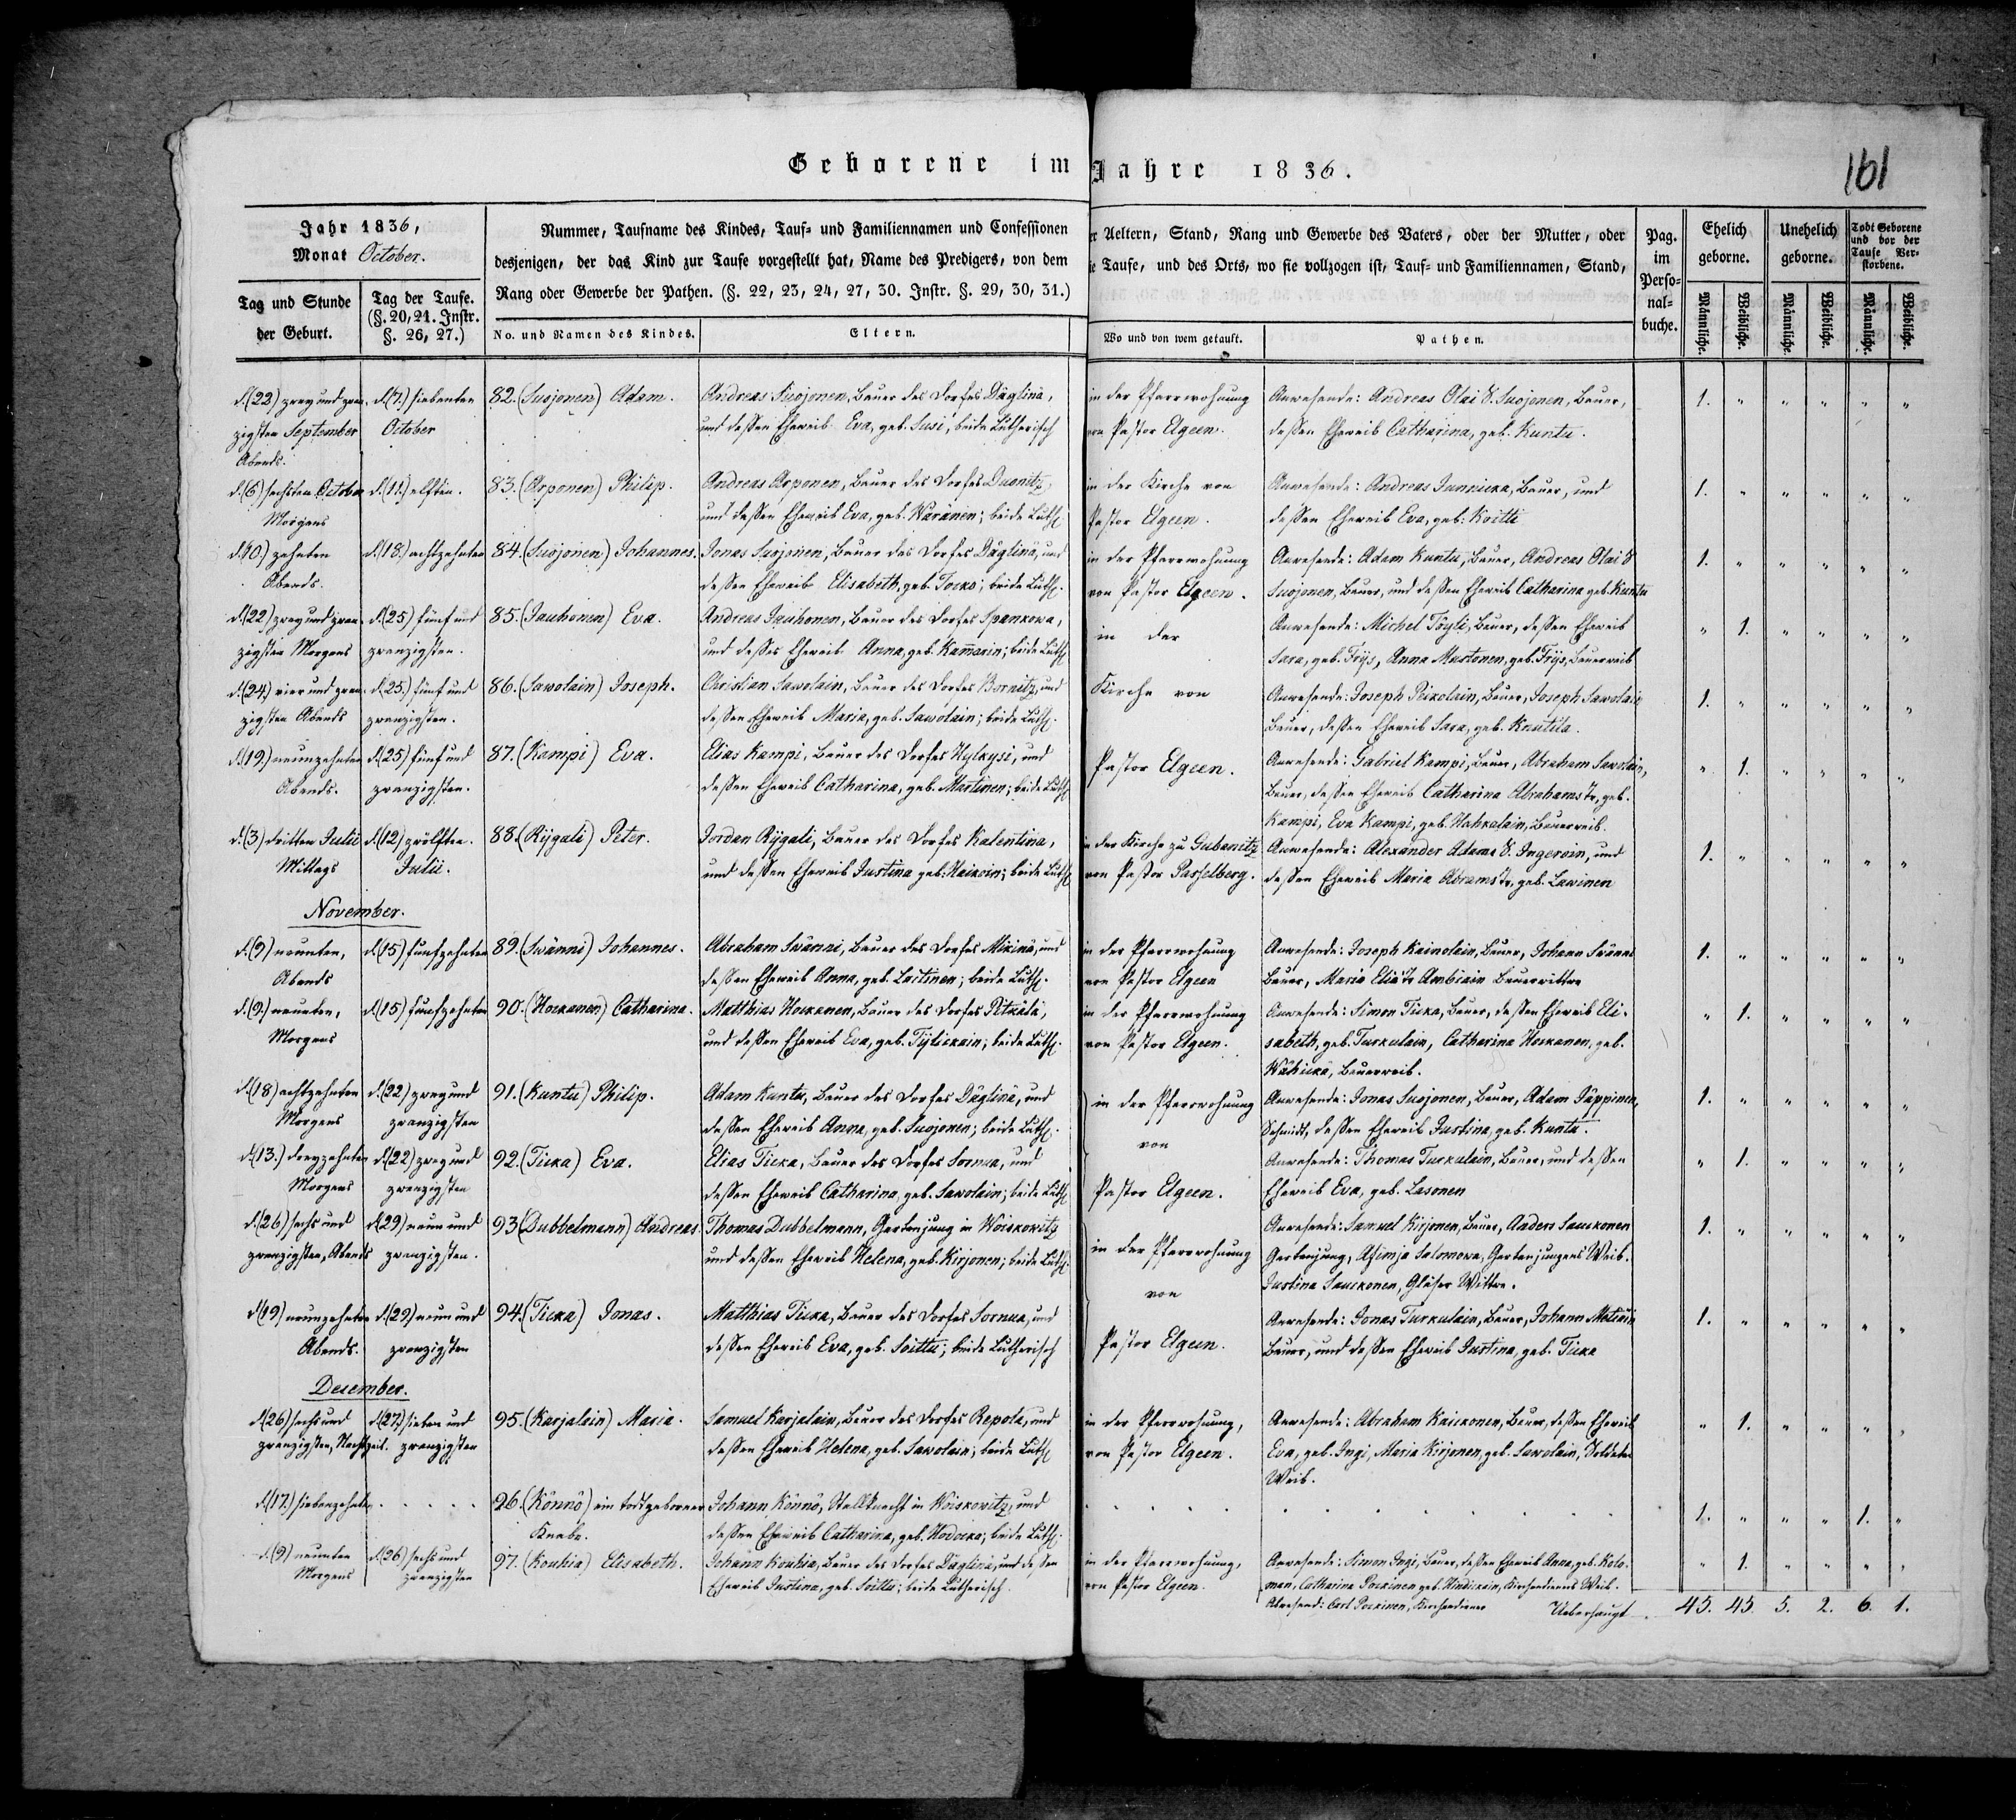 Geborene im Jahre 1836.
161
Jahr 1836,
Monat October.
Tag und Stunde
der Geburt.
Tag der Taufe.
(§. 20, 21. Instr.
§. 26, 27.)
Nummer, Taufname des Kindes, Tauf- und Familiennamen und Confessionen
desjenigen, der das Kind zur Taufe vorgestellt hat, Name des Predigers, von dem
Rang oder Gewerbe der Pathen. (§. 22, 23, 24, 27, 30. Instr. §. 29, 30, 31.)
No. und Namen des Kindes.
Eltern.
er Aeltern, Stand, Rang und Gewerbe des Vaters, oder der Mutter, oder
ie Taufe, und des Orts, wo sie vollzogen ist, Tauf- und Familiennamen, Stand,
Wo und von wem getauft.
Pathen.
Pag.
im
Perso-
nal-
buche.
Ehelich
geborne.
Unehelich
geborne.
Todt Geborene
und vor der
Taufe Ver-
storbene.
Männliche.
Weibliche.
Männliche.
Weibliche.
Männliche.
Weibliche.
d. (22) zwey und zwan-
zigsten September
Abends.
d. (7.) siebenten
October
82. (Suojonen) Adam.
Andreas Suojonen, Bauer des Dorfes Däglinä,
und dessen Eheweib Eva, geb. Susi, beide Lutherisch
in der Pfarrwohnung
von Pastor Elgeen.
Anwesende: Andreas Olai S. Suojonen, Bauer,
dessen Eheweib Catharina, geb. Kuntu.
1. " " " " "
d. (6) sechsten October
Morgens
d. (11) elften.
83. (Arponen) Philip.
Andreas Arponen, Bauer des Dorfes Duonitz,
und dessen Eheweib Eva, geb. Wäränen; beide Luth.
in der Kirche von
Pastor Elgeen.
Anwesende: Andreas Junnicka, Bauer, und
dessen Eheweib Eva, geb: Koitti
1. " " " " "
d. (10.) zehnten
Abends.
d. (18.) achtzehnten
84. (Suojonen) Johannes.
Jonas Suojonen, Bauer des Dorfes Däglinä, und
dessen Eheweib Elisabeth, geb. Tocko; beide Luth.
in der Pfarrwohnung
von Pastor Elgeen.
Anwesende: Adam Kuntu, Bauer, Andreas Olai S
Suojonen, Bauer, und dessen Eheweib Catharina geb. Kuntu
1. " " " " "
d. (22) zwey und zwan-
zigsten Morgens
d. (25) fünf und
zwanzigsten.
85. (Jauhonen) Eva.
Andreas Jauhonen, Bauer des Dorfes Spankowa,
und dessen Eheweib Anna, geb. Kamarin; beide Luth.
in der
Anwesende: Michel Töyli, Bauer, dessen Eheweib
Sara, geb. Frijs, Anna Mustonen, geb. Frijs, Bauerweib
" 1. " " " "
d. (24) vier und zwan-
zigsten Abends
d. 25.) fünf und
zwanzigsten.
86. (Sawolain) Joseph.
Christian Sawolain, Bauer des Dorfes Bornitz, und
dessen Eheweib Maria, geb. Sawolain; beide Luth.
Kirche von
Anwesende: Joseph Peikolain, Bauer, Joseph Sawolain
Bauer, dessen Eheweib Sara, geb. Knutila.
1. " " " " "
d. (19.) neunzehnten
Abends.
d. (25) fünf und
zwanzigsten.
87. (Kampi) Eva.
Elias Kampi, Bauer des Dorfes Hylkysi, und
dessen Eheweib Catharina, geb. Martinen; beide Luth.
Pastor Elgeen.
Anwesende: Gabriel Kampi, Bauer, Abraham Sawolain,
Bauer, dessen Eheweib Catharina Abrahams Tr, geb.
Kampi, Eva Kampi, geb. Hahkalain, Bauerweib.
" 1. " " " "
d. (3) dritten Julii
Mittags
d. (12) zwölften.
Julii.
88. (Rijgali) Peter.
Jordan Rijgali, Bauer des Dorfes Kalentina,
und dessen Eheweib Justina geb: Haikoin; beide Luth.
in der Kirche zu Gubanitz
von Pastor Passelberg.
Anwesende: Alexander Adams S. Ingeroin, und
dessen Eheweib Maria Abrams Tr, geb. Lawinen
1. " " " " "
November.
d. (9) neunten,
Abends
d. (15) fünfzehnten
89. (Swänni) Johannes.
Abraham Swänni, Bauer des Dorfes Mikinä, und
dessen Eheweib Anna, geb. Laitinen; beide Luth.
in der Pfarrwohnung
von Pastor Elgeen
Anwesende: Joseph Kainolain, Bauer, Johann Swänni
Bauer, Maria Eliä Tr Ambiäin Bauerwittwe
1. " " " " "
d. (9.) neunten,
Morgens
d. (15) fünfzehnten
90. (Hockanen) Catharina.
Matthias Hockanen, Bauer des Dorfes Pitkälä,
und dessen Eheweib Eva, geb. Tijlickain; beide Luth.
in der Pfarrwohnung
von Pastor Elgeen.
Anwesende: Simon Ticka, Bauer, dessen Eheweib Eli-
sabeth, geb. Turkulain, Catharina Hockanen, geb.
Wähickä, Bauerweib.
" 1. " " " "
d. (18) achtzehnten
Morgens
d. (22) zwey und
zwanzigsten
91. (Kuntu) Philip.
Adam Kuntu, Bauer des Dorfes Däglinä, und
dessen Eheweib Anna, geb. Suojonen; beide Luth.
in der Pfarrwohnung
von
Anwesende: Jonas Suojonen, Bauer, Adam Jäppinen,
Schmidt, dessen Eheweib Justina, geb. Kuntu.
1. " " " " "
d. (13.) dreyzehnten
Morgens
d. (22) zwey und
zwanzigsten
92. (Ticka) Eva.
Elias Ticka, Bauer des Dorfes Sornua, und
dessen Eheweib Catharina, geb. Sawolain; beide Luth.
Pastor Elgeen.
Anwesende: Thomas Turkulain, Bauer, und dessen
Eheweib Eva, geb. Lasonen
" 1. " " " "
d. (26) sechs und
zwanzigsten, Abends
d. (29) neun und
zwanzigsten.
93 (Dubbelmann) Andreas
Thomas Dubbelmann, Gartenjung in Woiskowitz
und dessen Eheweib Helena, geb. Kirjonen; beide Luth.
in der Pfarrwohnung
von
Anwesende: Samuel Kirjonen, Bauer, Anders Sauckonen
Gartenjung, Afimja Salomowa, Gartenjungens Weib.
Justina Sauckonen, Gläser Wittwe.
1. " " " " "
d. (19) neunzehnten
Abends.
d. (29) neun und
zwanzigsten
94. (Ticka) Jonas.
Matthias Ticka, Bauer des Dorfes Sornua, und
dessen Eheweib Eva, geb. Soittu; beide Lutherisch
Pastor Elgeen.
Anwesende: Jonas Turkulain, Bauer, Johann
Bauer, und dessen Eheweib Justina, geb. Ticka
1. " " " " "
December.
d. (26) sechs und
zwanzigsten, Nachtzeit.
d. (27.) sieben und
zwanzigsten
95. (Karjalain) Maria.
Samuel Karjalain, Bauer des Dorfes Repola, und
dessen Eheweib Helena, geb. Sawolain; beide Luth.
in der Pfarrwohnung,
von Pastor Elgeen.
Anwesende: Abraham Kaickonen, Bauer, dessen Eheweib
Eva, geb. Ingi, Maria Kirjonen, geb. Sawolain, Soldaten
Weib.
" 1. " " " "
d. (17.) siebenzehnten
96. (Könnö) ein todtgeborner
Knabe.
Johann Könnö, Stallknecht in Woiskowitz, und
dessen Eheweib Catharina, geb. Hodocka; beide Luth.
1. " " " 1. "
d. (9) neunten
Morgens
d. (26) sechs und
zwanzigsten
97. (Koukia) Elisabeth.
Johann Koukia, Bauer des Dorfes Däglinä, und dessen
Eheweib Justina, geb. Soittu; beide Lutherisch.
in der Pfarrwohnung,
von Pastor Elgeen.
Anwesende: Simon Ingi, Bauer, dessen Eheweib Anna, geb. Kolo-
man, Catharina Pockinen geb. Hindickain, Kirchendieners Weib.
Abwesend: Carl Pockinen, Kirchendiener
" 1. " " " "
Ueberhaupt. 45. 45. 5. 2. 6. 1.